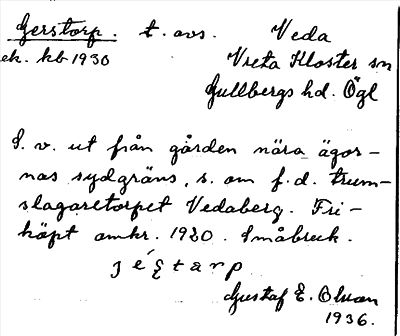 Gerstorp. t. avs. Veda
ek. kb 1930 Vreta Kloster sn
Gullbergs hd. Ögl
S. v. ut från gården nära ägor-
nas sydgräns, s. om f. d. trum-
slagaretorpet Vedaberg. Fri-
köpt omkr. 1920. Småbruk.
Gustaf E. Olsson
1936.